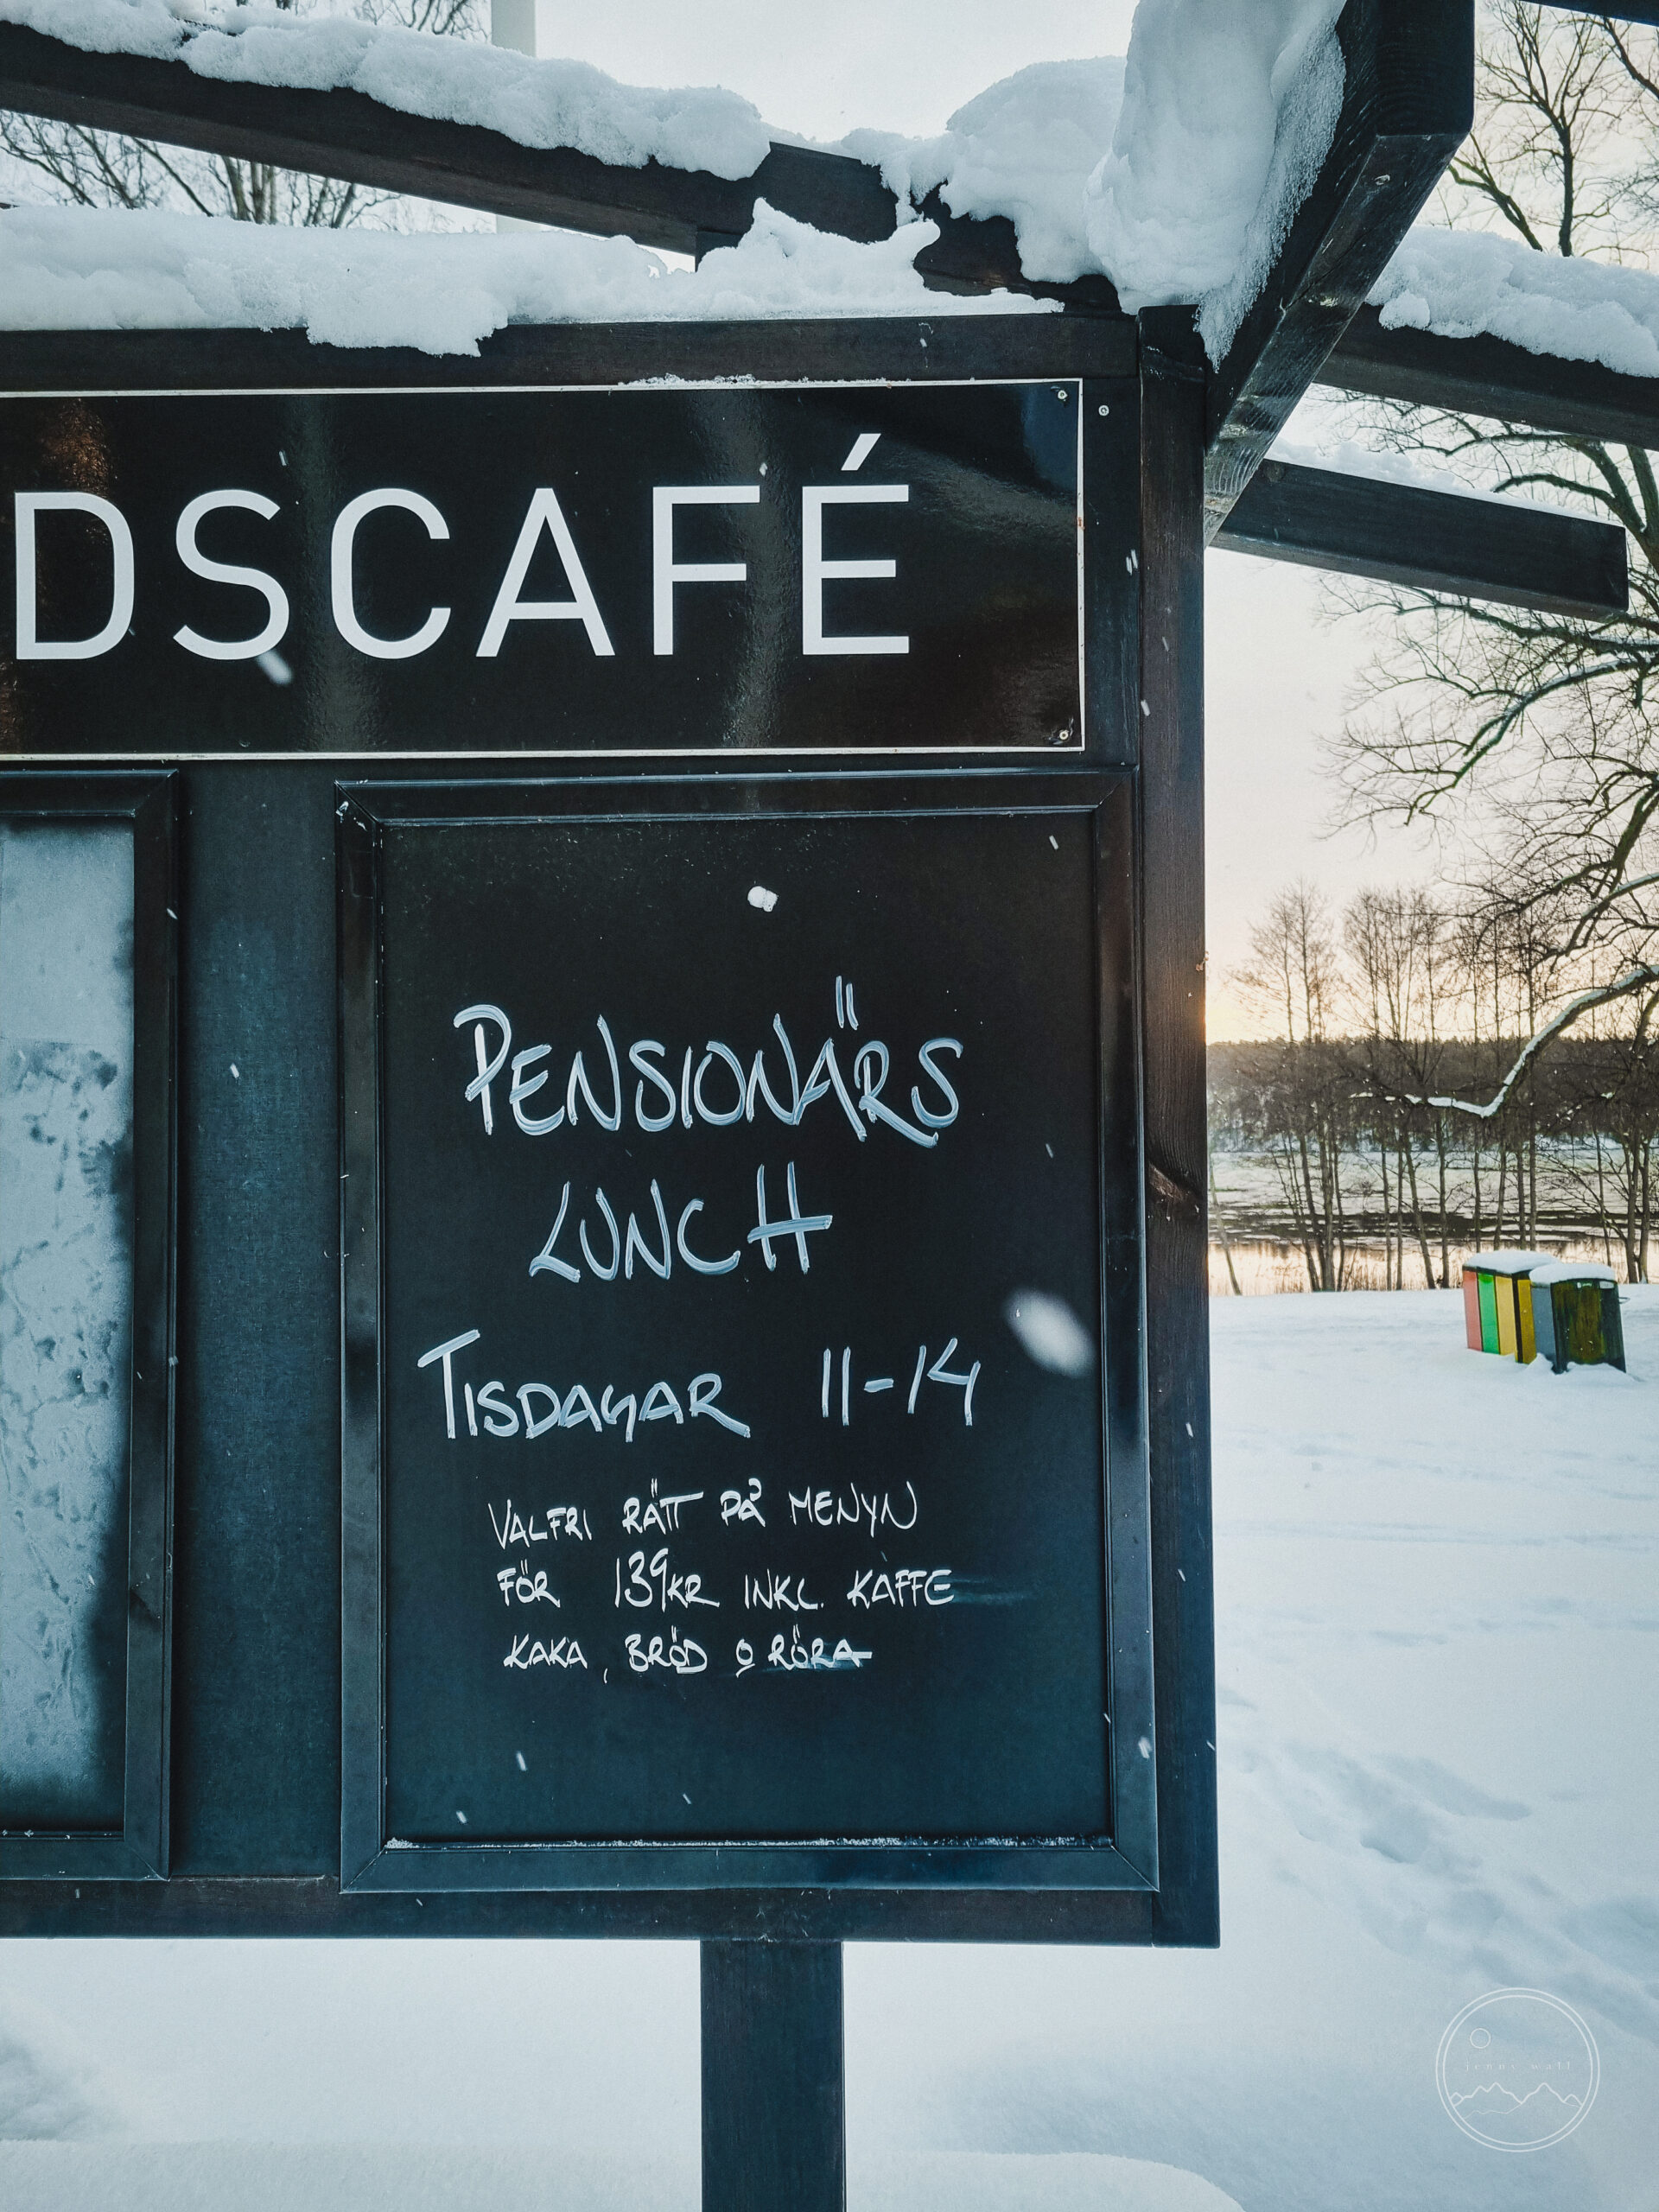 DSCAFÉ
PENSIONÄRS
LUNCH
TISDAGAR 11-14
VALFRI RÄTT PÅ MENYN
FÖR 139KR INKL. KAFFE
KAKA, BRÖD O RÖRA
jenny wall